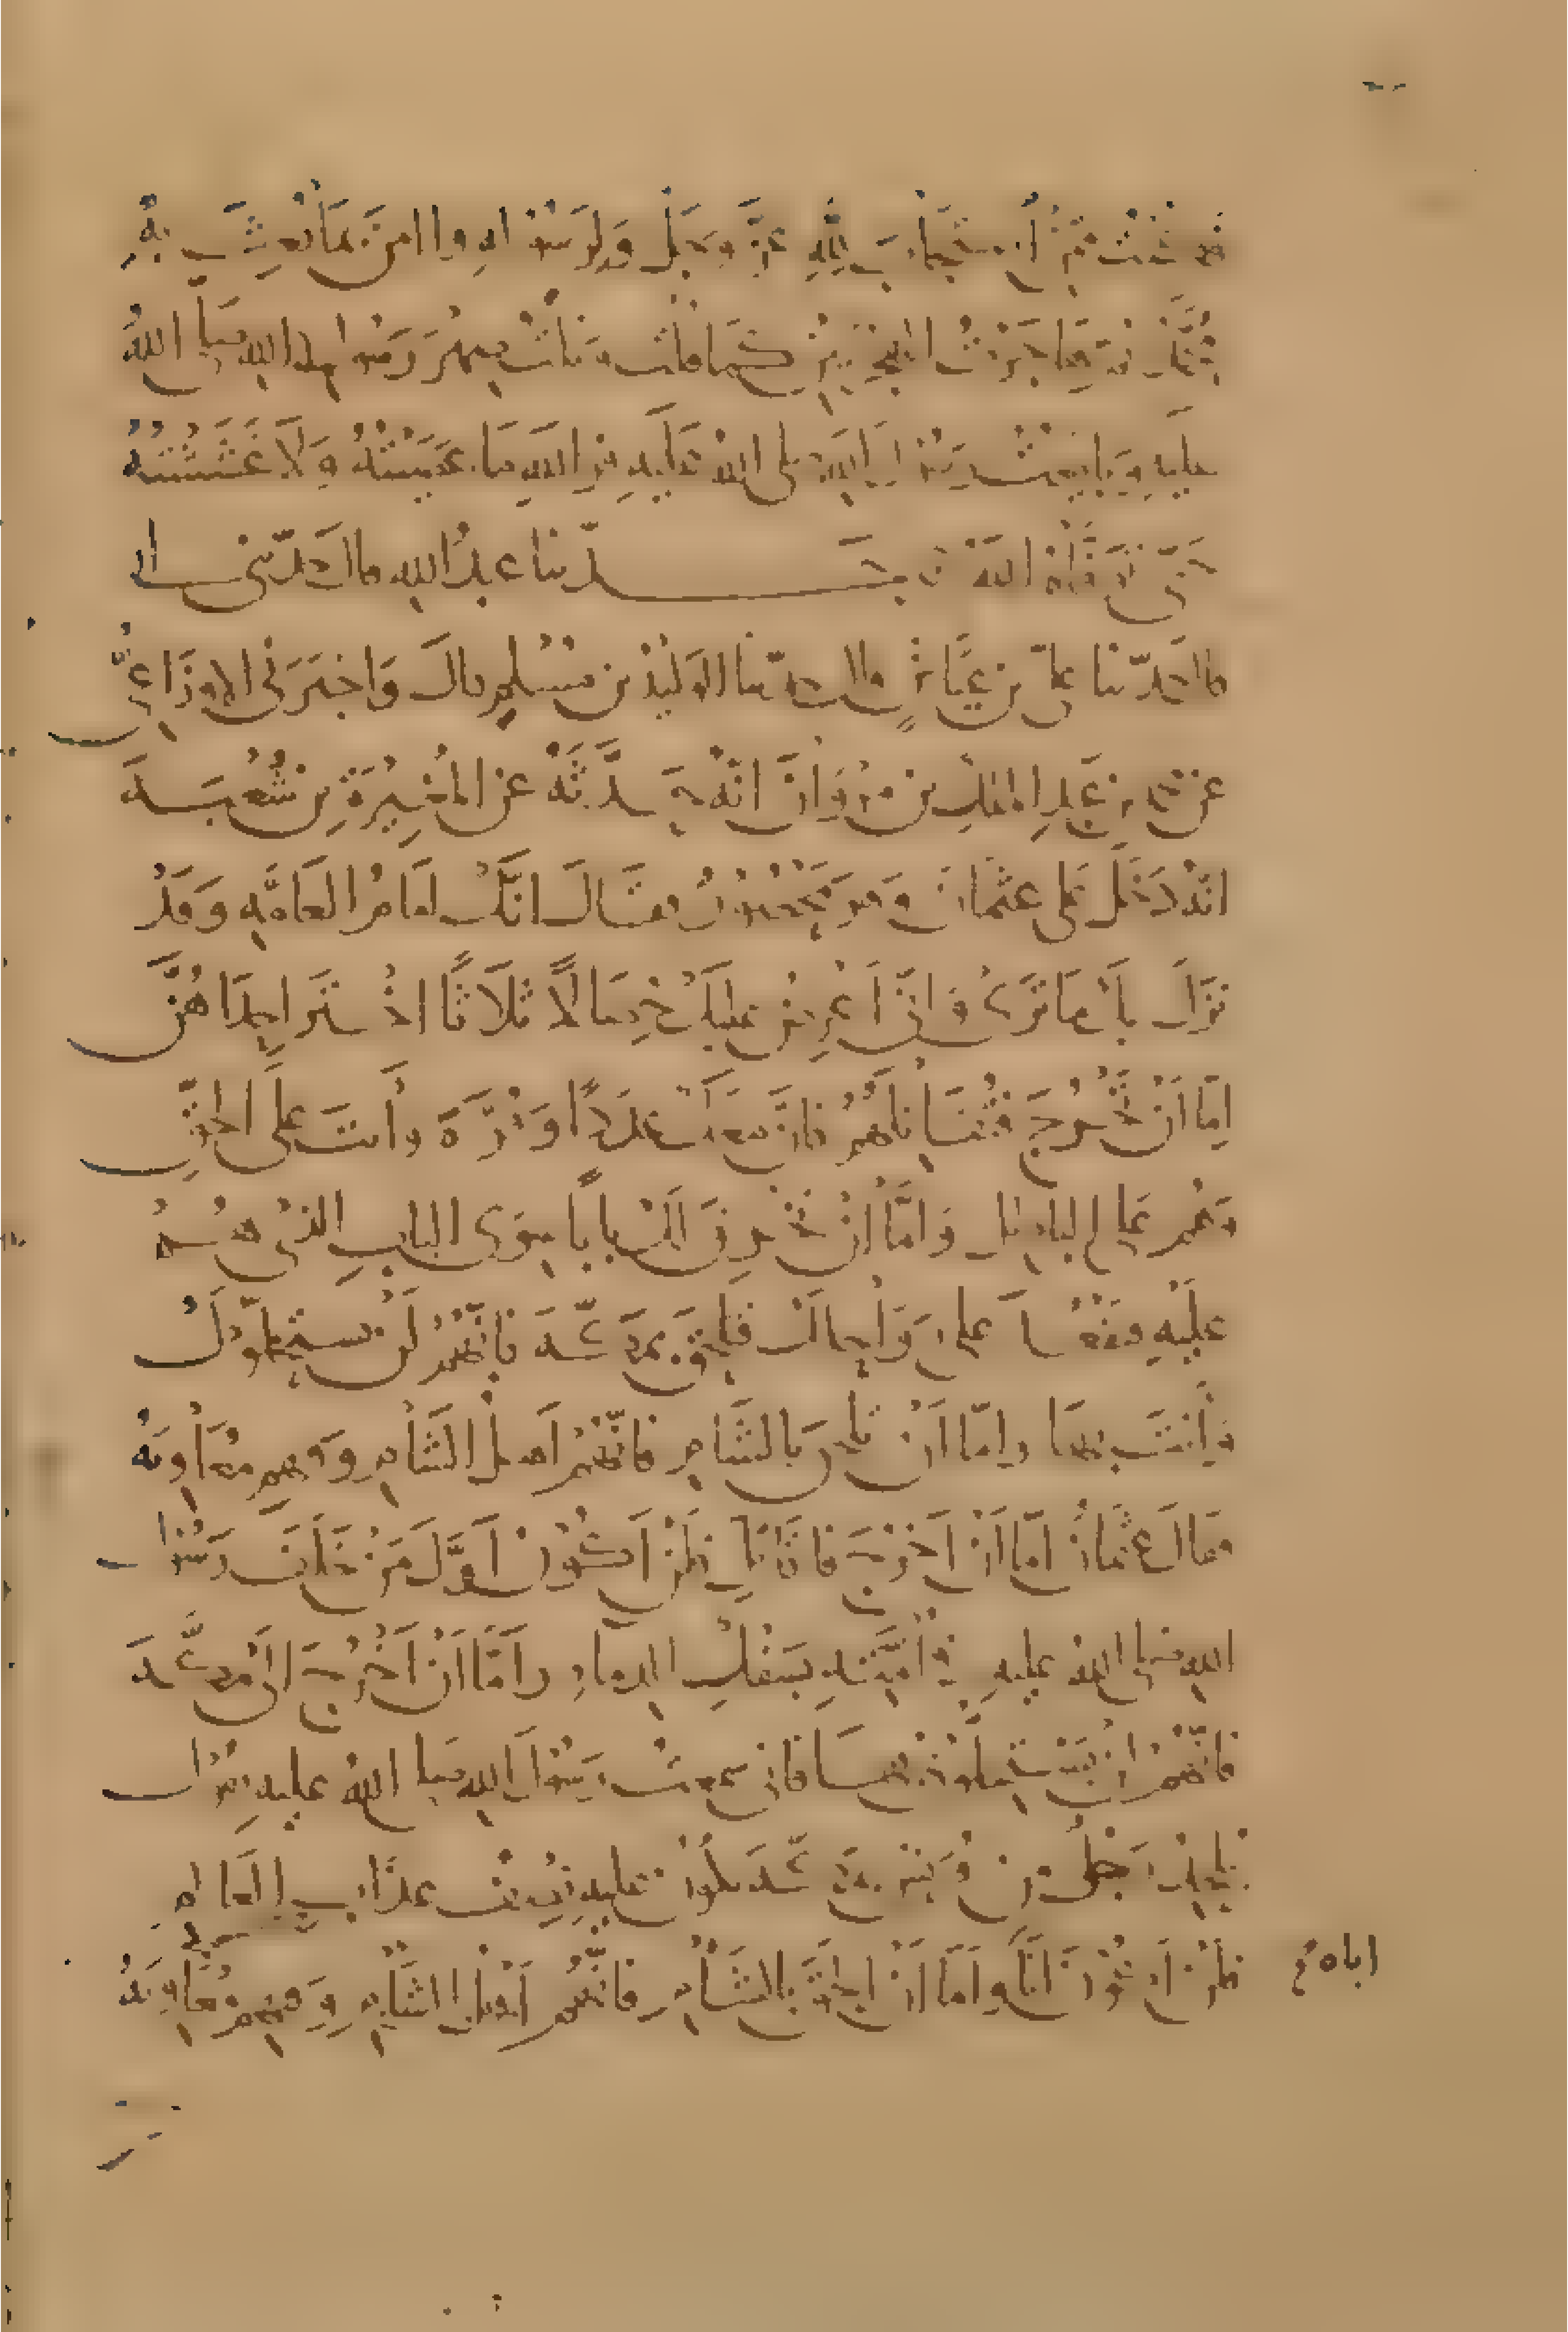 فكنت ممن استجاب لله عز وجل ولرسوله وامن بما بعث به
ثم هاجرت الهجرتين كما قلت ونلت صهر رسول الله صلى الله
عليه وبايعت رسول الله صلى الله عليه فوالله ما عصيته ولا غششته
حتى توفاه الله حدثنا عبد الله قال حدثني ابي
قال حدثنا علي بن عياش قال حدثنا الوليد بن مسلم قال واخبرني الاوزاعي
عن محمد بن عبد الملك بن مروان انه حدثه عن المغيرة بن شعبة
انه دخل على عثمان وهو محصور فقال انك امام العامه وقد
نزل بك ما ترى واني اعرض عليك خصالا ثلاثا اختر احداهن
اما ان تخرج فتقاتلهم فان معك عددا وقوة وانت على الحق
وهم على الباطل واما ان تخرق لك بابا سوى الباب الذي هم
عليه فتقعد على رواحلك فتلحق بمكة فانهم لن يستحلوك
وانت بها واما ان تلحق بالشام فانهم اهل الشام وفيهم معاوية
فقال عثمان اما ان اخرج فاقاتل فلن اكون اول من خلف رسول
الله صلى الله عليه في امته بسفك الدماء واما ان اخرج الى مكة
فانهم لن يستحلوني بها فاني سمعت رسول الله صلى الله عليه يقول
يلحد رجل من قريش بمكة يكون عليه نصف عذاب العالم
فلن اكون انا واما ان الحق بالشام فانهم اهل الشام وفيهم معاوية
اياه